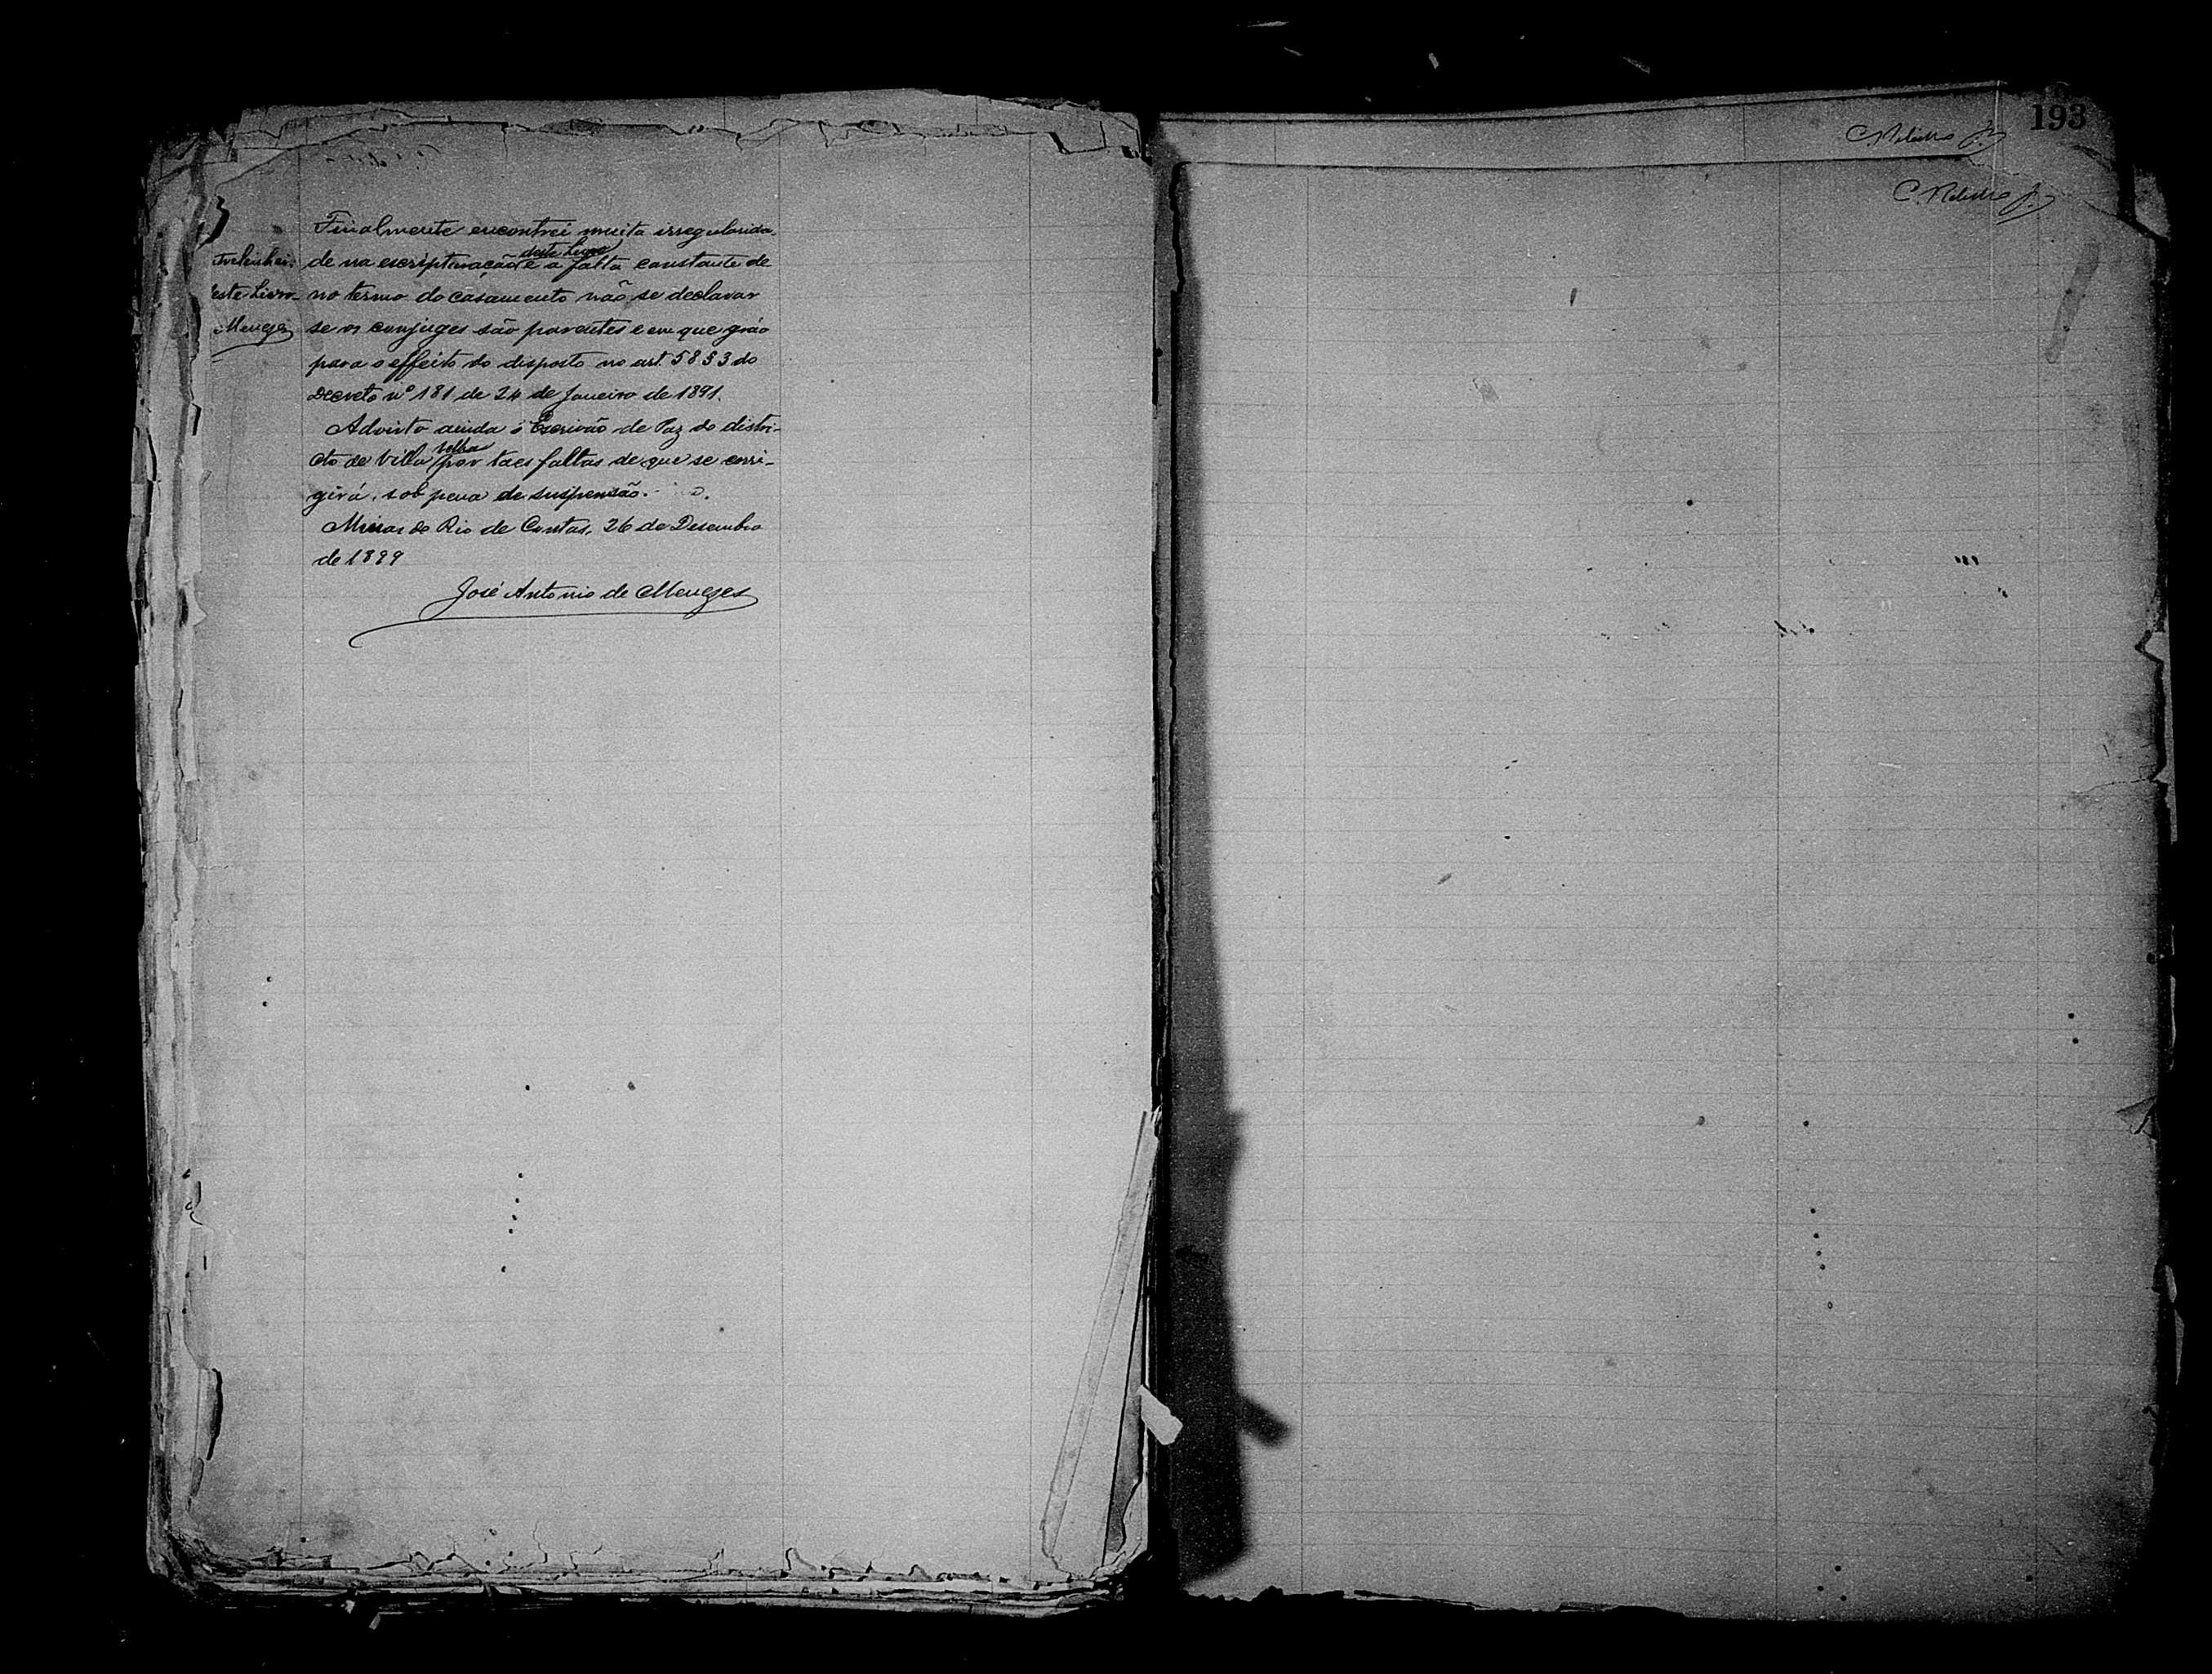 193
C. Ribeiro Jr.
C. Ribeiro Jr.
Finalmente encontrei muita irregularida-
de na escripturação deste Livro e a falta constante de
este Livro- no termo do casamento não se declarar
Menezes se os conjuges são parentes e em que gráo
para o effeito do disposto no art. 58 § 3 do
Decreto nº 181 de 24 de Janeiro de 1891.
Advirto ainda ó Escrivão de Paz do distri-
cto de Villa Velha por taes faltas de que se corri-
girá, sob pena de suspensão.
Minas do Rio de Contas, 26 de Desembro
de 1899
José Antonio de Menezes